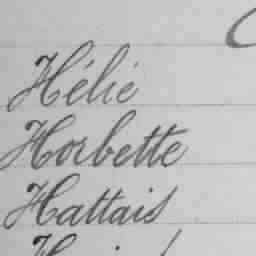 Hélié
Horbette
Hattais